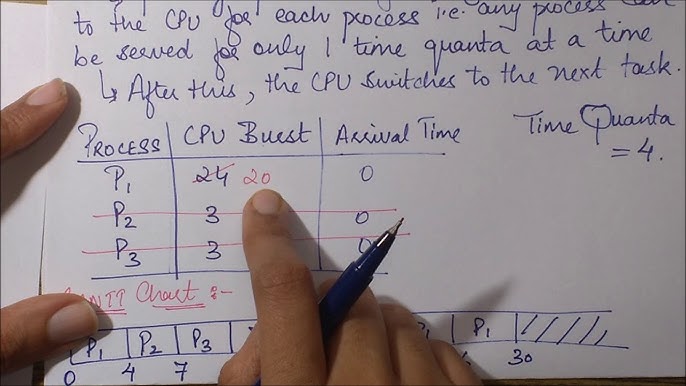 to the CPU for each process i.e. any process can
be served for only 1 time quanta at a time
↳ After this, the CPU switches to the next task.
Time Quanta
= 4.
PROCESS CPU Burst Arrival Time
P1 24 20 0
P2 3 0
P3 3 0
Chart :-
P1 P2 P3 P1 P1
0 4 7 30